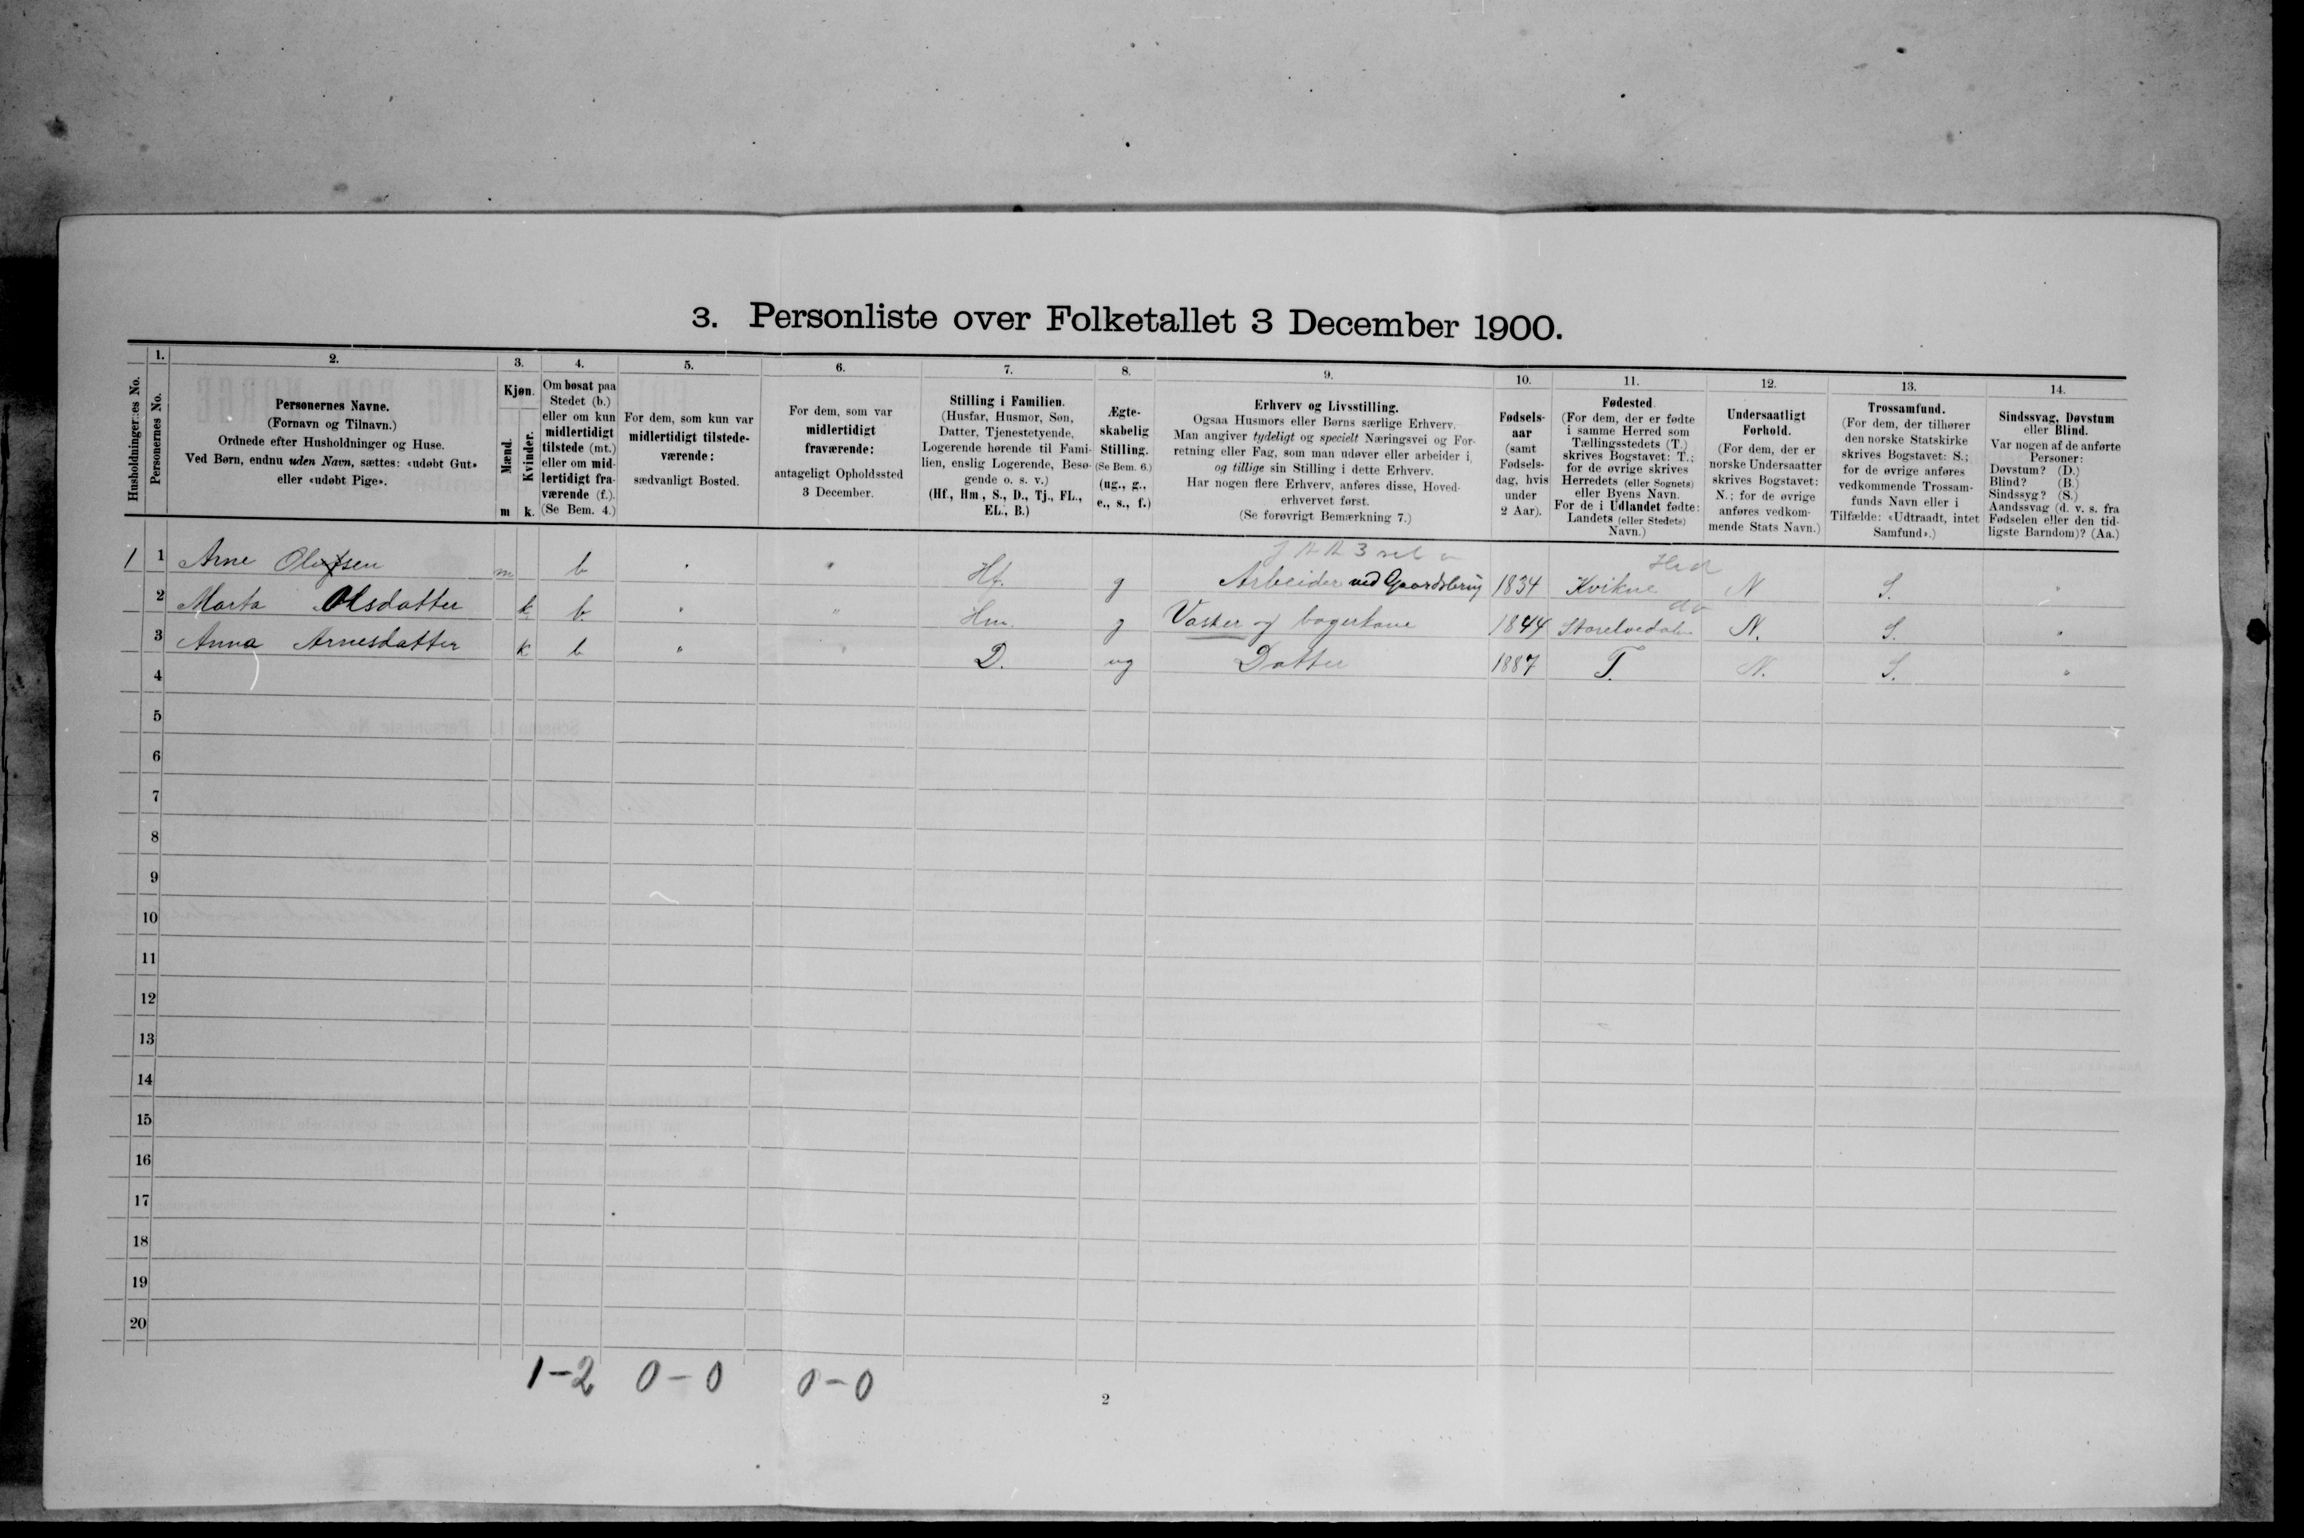 3. Personliste over Folketallet 3 December 1900.
Husholdningernes No.
1.
Personernes No.
2.
Personernes Navne.
(Fornavn og Tilnavn.)
Ordnede efter Husholdninger og Huse.
Ved Børn, endnu uden Navn, sættes: «udøbt Gut»
eller «udøbt Pige».
3.
Kjøn.
Mænd.
Kvinder.
m k.
4.
Om bosat paa
Stedet (b.)
eller om kun
midlertidigt
tilstede (mt.)
eller om mid-
lertidigt fra-
værende (f.).
(Se Bem. 4.)
5.
For dem, som kun var
midlertidigt tilstede-
værende:
sædvanligt Bosted.
6.
For dem, som var
midlertidigt
fraværende:
antageligt Opholdssted
3 December.
7.
Stilling i Familien.
(Husfar, Husmor, Søn,
Datter, Tjenestetyende,
Logerende hørende til Fami-
lien, enslig Logerende, Besø-
gende o. s. v.)
(Hf., Hm., S., D., Tj., FL.,
EL., B.)
8.
Ægte-
skabelig
Stilling.
(Se Bem. 6.)
(ug., g.,
e., s., f.)
9.
Erhverv og Livsstilling.
Ogsaa Husmors eller Børns særlige Erhverv.
Man angiver tydeligt og specielt Næringsvei og For-
retning eller Fag, som man udøver eller arbeider i,
og tillige sin Stilling i dette Erhverv.
Har nogen flere Erhverv, anføres disse, Hoved-
erhvervet først.
(Se forøvrigt Bemærkning 7.)
10.
Fødsels-
aar
(samt
Fødsels-
dag, hvis
under
2 Aar).
11.
Fødested.
(For dem, der er fødte
i samme Herred som
Tællingsstedets (T.)
skrives Bogstavet: T.;
for de øvrige skrives
Herredets (eller Sognets)
eller Byens Navn.
For de i Udlandet fødte:
Landets (eller Stedets)
Navn.)
12.
Undersaatligt
Forhold.
(For dem, der er
norske Undersaatter
skrives Bogstavet:
N.; for de øvrige
anføres vedkom-
mende Stats Navn.)
13.
Trossamfund.
(For dem, der tilhører
den norske Statskirke
skrives Bogstavet: S.;
for de øvrige anføres
vedkommende Trossam-
funds Navn eller i
Tilfælde: «Udtraadt, intet
Samfund».)
14.
Sindssvag, Døvstum
eller Blind.
Var nogen af de anførte
Personer:
Døvstum? (D.)
Blind? (B.)
Sindssyg? (S.)
Aandssvag (d. v. s. fra
Fødselen eller den tid-
ligste Barndom)? (Aa.)
1 1 Arne Olufsen m b " " Hf. g Arbeider ved Gaardsbrug 1834 Kvikne Hed N S. "
2 Marta Olsdatter k b. " " Hm. g Vasker og bagerkone 1844 Storelvedalen do N. S. "
3 Anna Arnesdatter k b " " D. ug Datter 1887 T. N. S. "
4
5
6
7
8
9
10
11
12
13
14
15
16
17
18
19
20
1-2 0-0 0-0
2